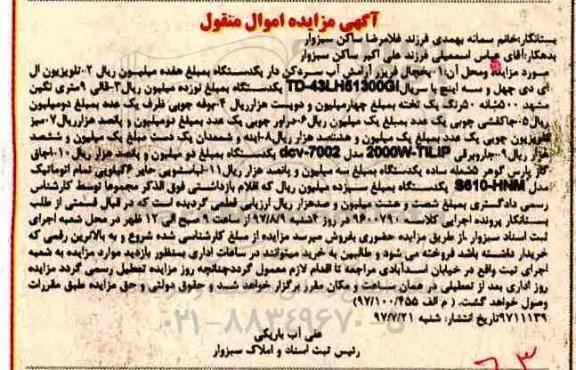 آگهی مزایده اموال منقول
بستانکار:خانم سمانه بهمدی فرزند غلامرضا ساکن سبزوار
بدهکار:آقای عباس اسمعیلی فرزند علی اکبر ساکن سبزوار
مورد مزایده ومحل آن:۱- یخچال فریزر آرامش آب سردکن دار یکدستگاه بمبلغ هفده میلیون ریال ۲-تلویزیون ال
ای دی چهل و سه اینچ با سریال TD-43LH51300GI یکدستگاه بمبلغ نوزده میلیون ریال۳-قالی ۹متری نگین
مشهد ۵۰۰شانه ۵۰رنگ یک تخته بمبلغ چهارمیلیون و دویست هزارریال ۴-بوفه جوبی ظرف یک عدد بمبلغ دومیلیون
ریال۵-جاکفشی چوبی یک عدد بمبلغ یک میلیون ریال۶-دراور چوبی یک عدد بمبلغ دومیلیون و پانصد هزارریال۷-میز
تلویزیون چوبی یک عدد بمبلغ یک میلیون و هشتصد هزار ریال۸-اینه و شمعدان یک دست مبلغ یک میلیون و ششصد
هزار ریال۹-جاروبرقی 2000W-TILIP مدل dcv-7002 یکدستگاه بمبلغ دو میلیون و پانصد هزار ریال۱۰-اجاق
گاز پارس گوهر ۵شعله ساده یکدستگاه بمبلغ سه میلیون و پانصد هزار ریال۱۱-لباسشویی حایر ۶کیلویی تمام اتوماتیک
مدل S610-HNM یکدستگاه بمبلغ سیزده میلیون ریال که اقلام بازداشتی فوق الذکر مجموعا توسط کارشناس
رسمی دادگستری بمبلغ شصت و هشت میلیون و صدهزار ریال ارزیابی قطعی گردیده است که در قبال قسمتی از طلب
بستانکار پرونده اجرایی کلاسه ۹۶۰۰۷۹۰ در روز ۴شنبه ۹۷/۸/۹ از ساعت ۹ صبح الی ۱۲ ظهر در محل شعبه اجرای
ثبت اسناد سبزوار ،از طریق مزایده حضوری بفروش میرسد مزایده از مبلغ کارشناسی شده شروع و به بالاترین رقمی که
خریدار داشته باشد فروخته می شود و طالبین به خرید میتوانند در ساعات اداری بمنظور بازدید موارد مزایده به شعبه
اجرای ثبت واقع در خیابان اسدآبادی مراجعه تا اقدام لازم معمول گرددچنانچه روز مزایده تعطیل رسمی گردد مزایده
روز اداری بعد از تعطیلی در همان ساعت و مکان مقرر برگزار خواهد شد و حقوق دولتی و حق مزایده طبق مقررات
وصول خواهد گشت. ( م الف ۹۷/۱۰۰/۴۵۵)
۹۷۱۱۱۳۹تاریخ انتشار: شنبه ۹۷/۷/۲۱
علی آب باریکی
رئیس ثبت اسناد و املاک سبزوار
۰۲۱-۸۸۳۴۹۶۷۰-۵